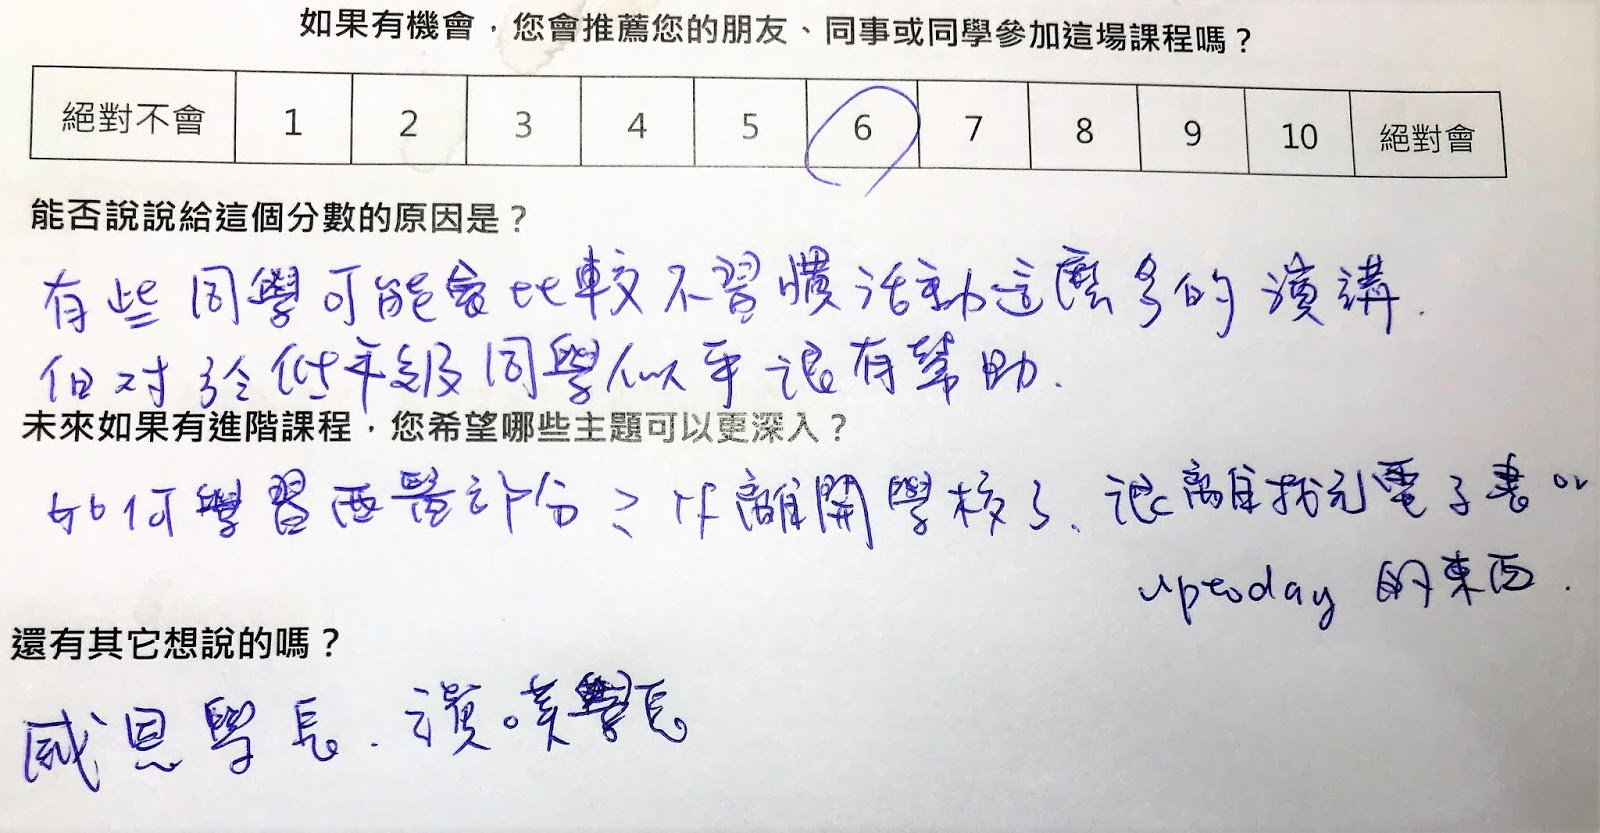 如果有機會，您會推薦您的朋友、同事或同學參加這場課程嗎？
絕對不會 1 2 3 4 5 6 7 8 9 10 絕對會
能否說說給這個分數的原因是？
有些同學可能會比較不習慣活動這麼多的演講.
但对於低年級同學似乎很有幫助.
未來如果有進階課程，您希望哪些主題可以更深入？
如何學習西醫部分 離開學校了、很難找到電子書 or
uptoday 的東西.
還有其它想說的嗎？
感恩學長. 讚嘆學長